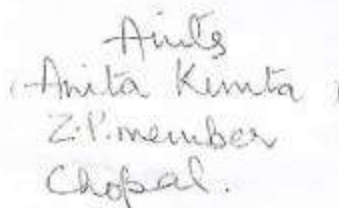 Anita
(Anita Kimta)
Z.P. member
Chopal.